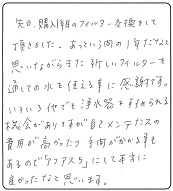 先日、購入2年目のフィルター交換をして
頂きました。あっという間の1年だなぁと
思いながらまた新しいフィルターを
通しての水を使える事に感謝です。
いろいろ他でも浄水器をすすめられる
機会がありますが自己メンテナンスの
費用が高かったり手間がかかる事も
あるので「クリアス5」にして本当に
良かったなと思います。